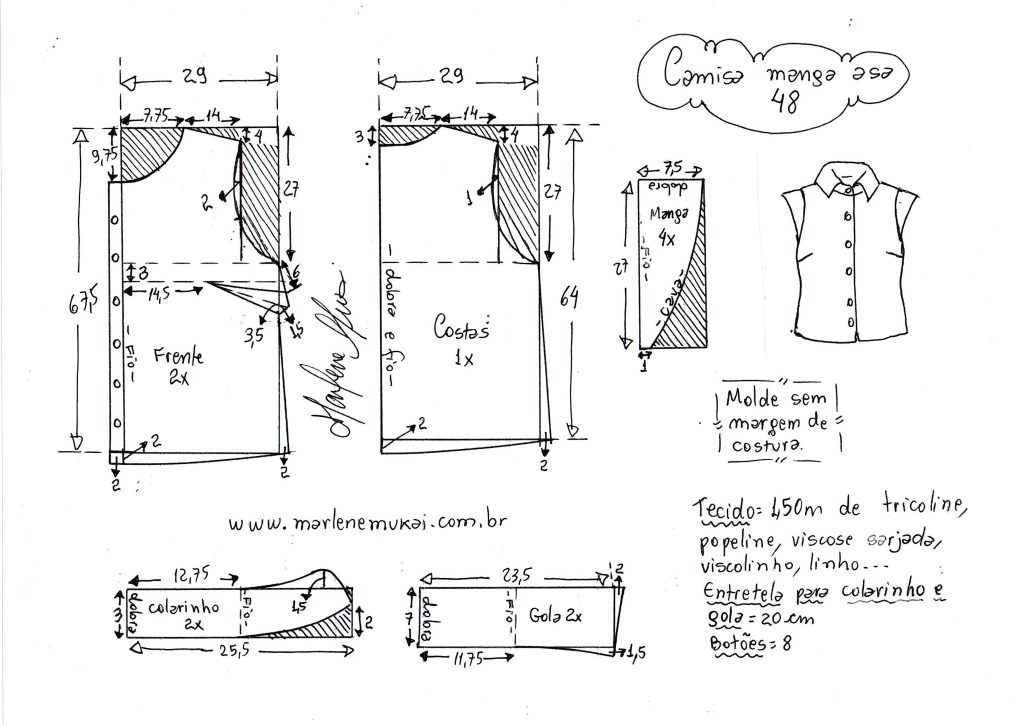 Camisa manga asa
48
29
7,75
14
4
9,75
27
2
3
14,5
6
3,5
1,5
67,5
Fio
Frente
2x
2
2
2
Marlene Mukai
29
7,75
14
3
4
27
1
64
dobra e fio
Costas
1x
2
2
7,5
dobra
Manga
4x
Fio
cava
27
1
Molde sem
margem de
costura.
www.marlenemukai.com.br
Tecido= 1,50m de tricoline,
popeline, viscose sarjada,
viscolinho, linho...
Entretela para colarinho e
gola = 20 cm
Botões = 8
12,75
3
dobra
colarinho
2x
Fio
1,5
2
25,5
23,5
2
7
dobra
Fio
Gola 2x
11,75
1,5